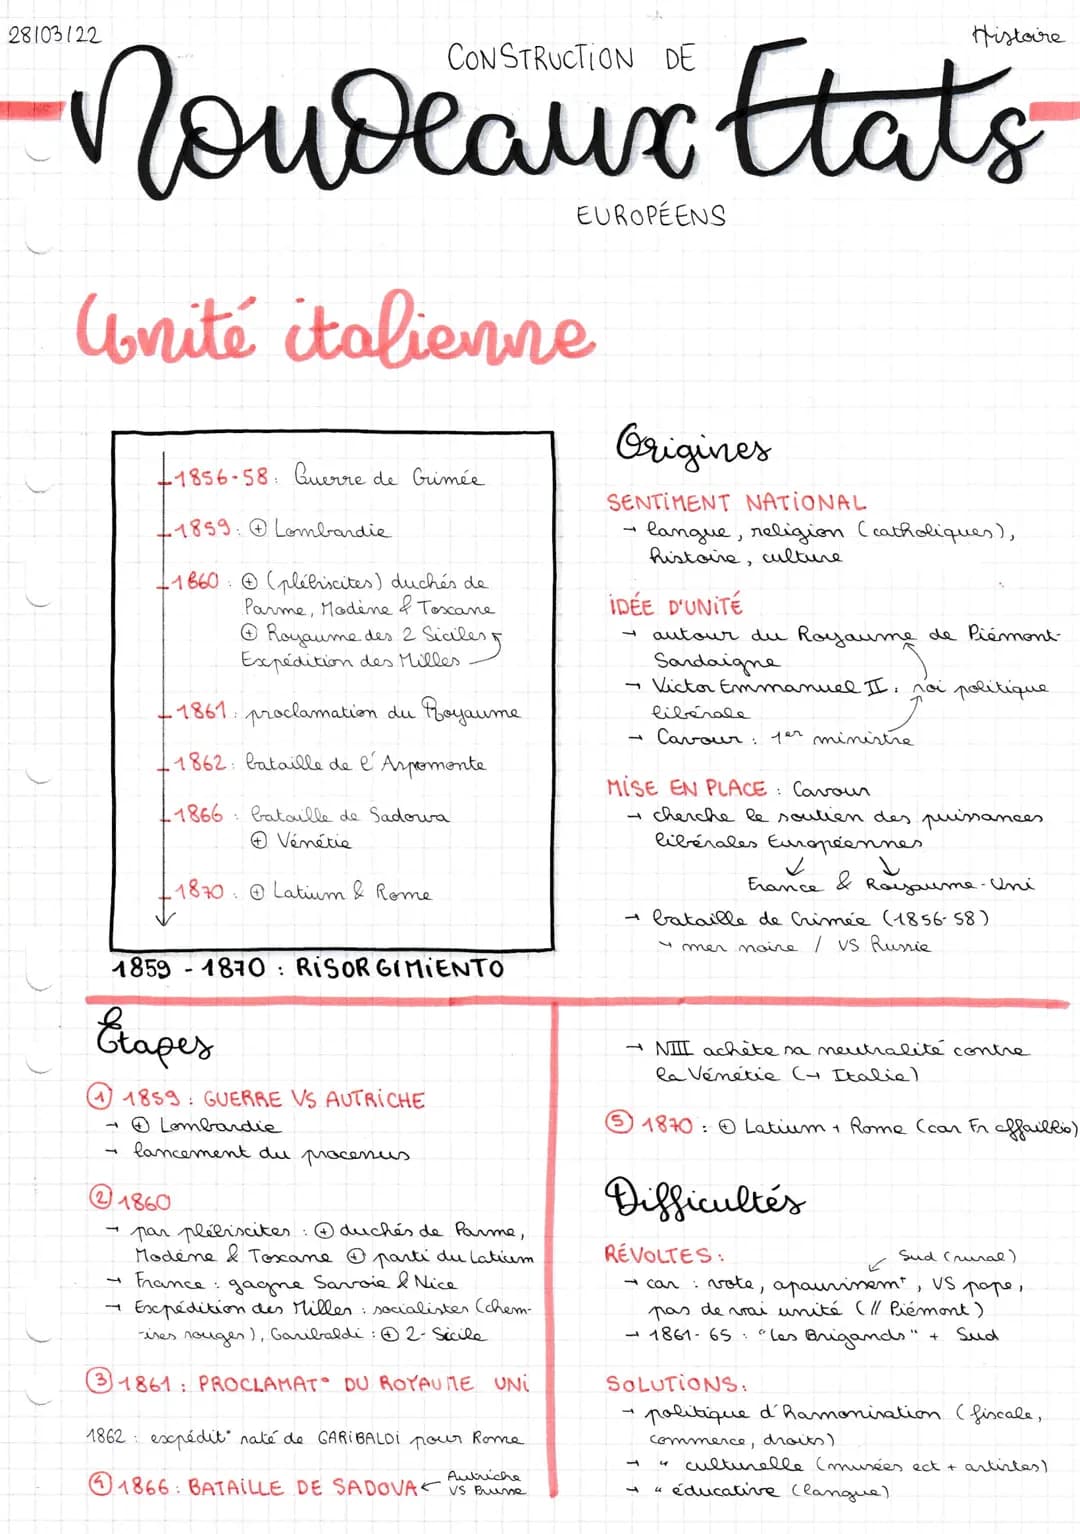 28/03/22
Histoire
CONSTRUCTION DE
Nouveaux Etats
EUROPÉENS
Unité italienne
1856-58 : Guerre de Crimée
1859 : ⊕ Lombardie
1860 : ⊕ (plébiscites) duchés de
Parme, Modène & Toscane
⊕ Royaume des 2 Siciles
Expédition des Milles
1861 : proclamation du Royaume
1862 : bataille de l'Aspomonte
1866 : bataille de Sadowa
⊕ Vénétie
1870 : ⊕ Latium & Rome
1859 - 1870 : RISORGIMIENTO
Origines
SENTIMENT NATIONAL
→ langue, religion (catholiques),
histoire, culture
IDÉE D'UNITÉ
→ autour du Royaume de Piémont-
Sardaigne
→ Victor Emmanuel II, roi politique
libérale
→ Cavour : 1er ministre
MISE EN PLACE : Cavour
→ cherche le soutien des puissances
libérales Européennes
France & Royaume-Uni
→ bataille de Crimée (1856-58)
↪ mer noire / VS Russie
Étapes
① 1859 : GUERRE VS AUTRICHE
→ ⊕ Lombardie
→ lancement du processus
② 1860
→ par plébiscites : ⊕ duchés de Parme,
Modène & Toscane ⊕ parti du Latium
→ France : gagne Savoie & Nice
→ Expédition des Milles : socialistes (chem-
-ises rouges), Garibaldi : ⊕ 2-Sicile
③ 1861 : PROCLAMAT° DU ROYAUME UNI
1862 : expédit° raté de GARIBALDI pour Rome
④ 1866 : BATAILLE DE SADOVA ← Autriche
VS Prusse
→ NIII achète sa neutralité contre
la Vénétie (→ Italie)
⑤ 1870 : ⊕ Latium + Rome (car Fr affaiblio)
Difficultés
RÉVOLTES :
Sud (rural)
→ car : vote, apauvrissemt, VS pape,
pas de vrai unité (// Piémont)
→ 1861-65 : "Les Brigands" + Sud
SOLUTIONS :
→ politique d'harmonisation (fiscale,
commerce, droits)
→ " culturelle (musées ect + artistes)
→ " éducative (langue)